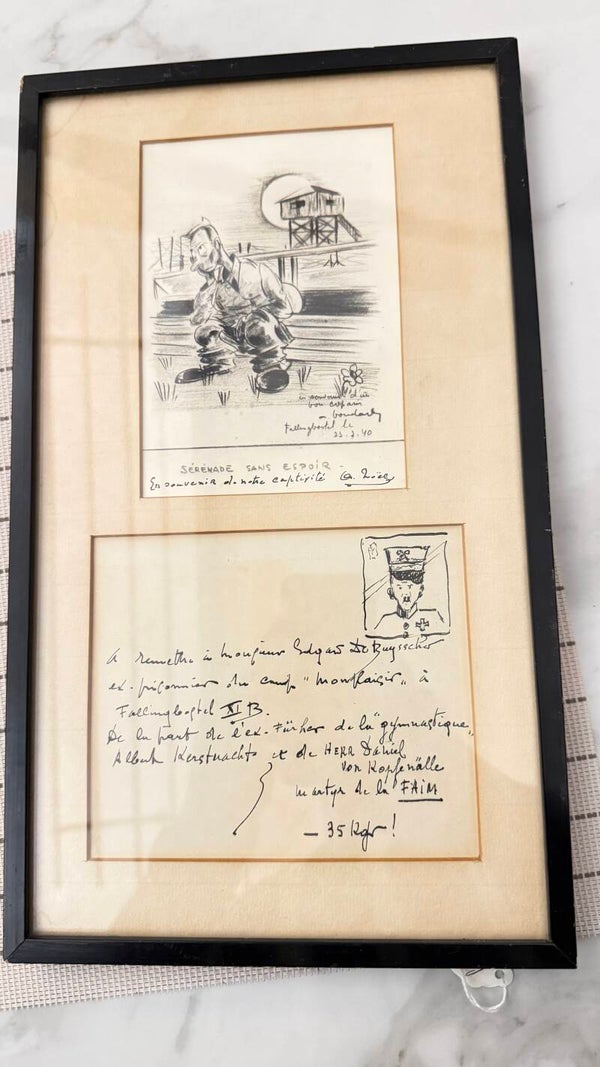 en souvenir d'un
bon copain
Fallingbostel le
23.2.40
SÉRÉNADE SANS ESPOIR -
En souvenir de notre captivité
A remettre à Monsieur Edgard De Buysscher
ex-prisonnier du camp "Monplaisir" à
Fallingbostel XI B.
De la part de l'ex-Fürher de la "gymnastique"
Albert Kerstnachts et de HERR Daniel
Von Kopfenälle
martyr de la FAIM
- 35 Kgr !